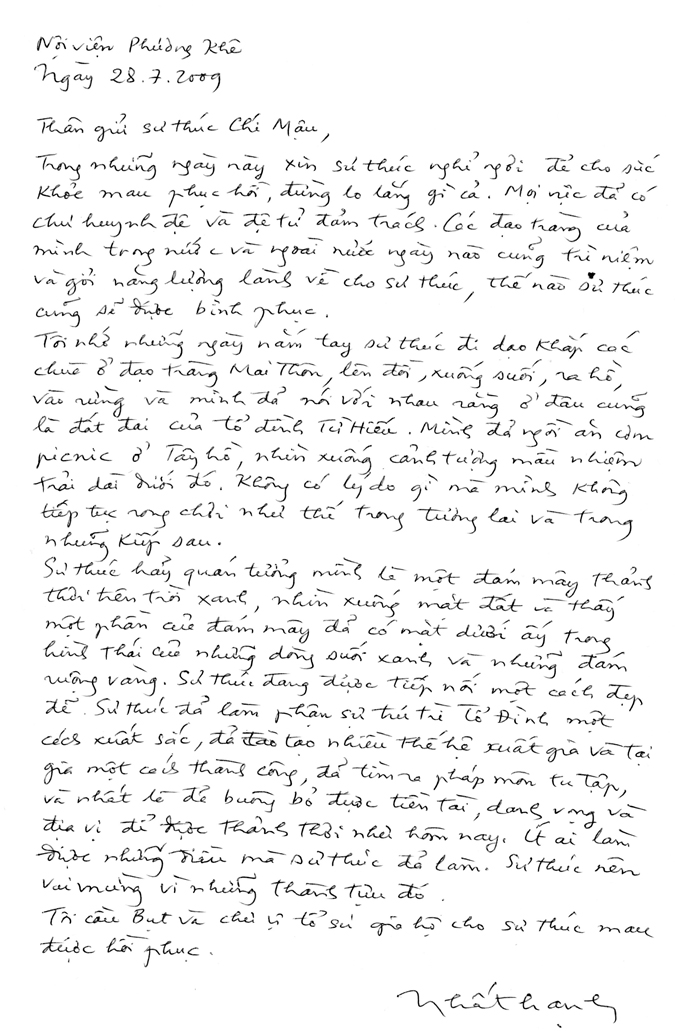 Nội viện Phương Khê
Ngày 28.7.2009
Thân gửi sư thúc Chí Mậu,
Trong những ngày này xin sư thúc nghỉ ngơi để cho sức
khỏe mau phục hồi, đừng lo lắng gì cả. Mọi việc đã có
chư huynh đệ và đệ tử đảm trách. Các đạo tràng của
mình trong nước và ngoài nước ngày nào cũng trì niệm
và gởi năng lượng lành về cho sư thúc, thế nào sư thúc
cũng sẽ được bình phục.
Tôi nhớ những ngày nắm tay sư thúc đi dạo khắp các
chùa ở đạo tràng Mai Thôn, lên đồi, xuống suối, ra hồ,
vào rừng và mình đã nói với nhau rằng ở đâu cũng
là đất đai của tổ đình Từ Hiếu. Mình đã ngồi ăn cơm
picnic ở Tây hồ, nhìn xuống cảnh tượng mầu nhiệm
trải dài dưới đó. Không có lý do gì mà mình không
tiếp tục rong chơi như thế trong tương lai và trong
những kiếp sau.
Sư thúc hãy quán tưởng mình là một đám mây thảnh
thơi trên trời xanh, nhìn xuống mặt đất và thấy
một phần của đám mây đã có mặt dưới ấy trong
hình thái của những dòng suối xanh và những đám
ruộng vàng. Sư thúc đang được tiếp nối một cách đẹp
đẽ. Sư thúc đã làm phận sự trú trì Tổ Đình một
cách xuất sắc, đã đào tạo nhiều thế hệ xuất gia và tại
gia một cách thành công, đã tìm ra pháp môn tu tập,
và nhất là đã buông bỏ được tiền tài, danh vọng và
địa vị để được thảnh thơi như hôm nay. Ít ai làm
được những điều mà sư thúc đã làm. Sư thúc nên
vui mừng vì những thành tựu đó.
Tôi cầu Bụt và chư vị tổ sư gia hộ cho sư thúc mau
được hồi phục.
Nhất hạnh